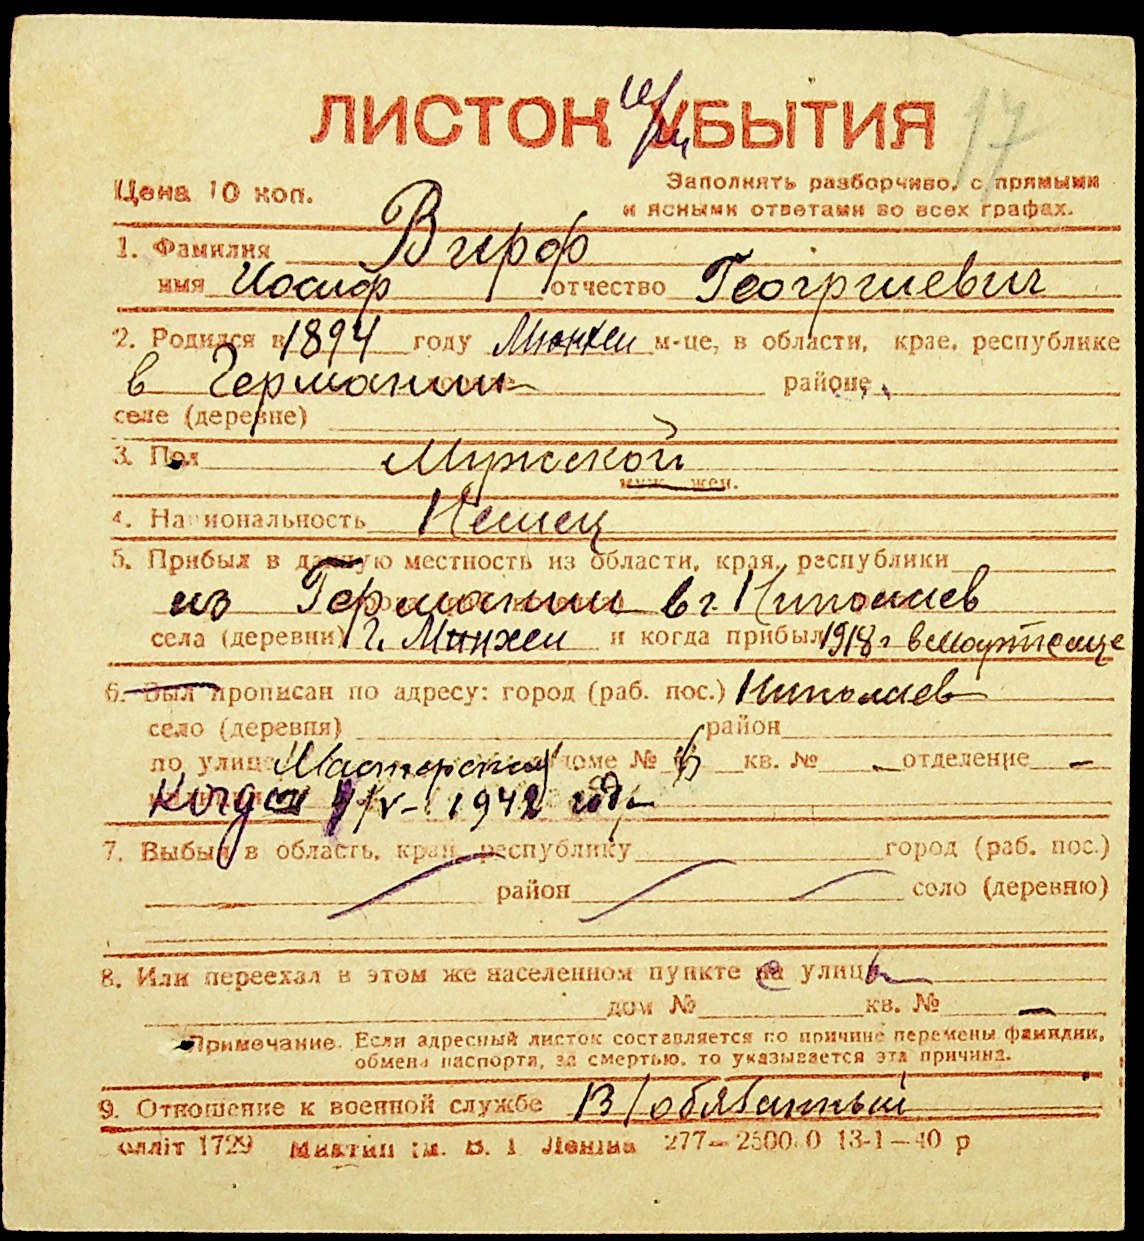 ЛИСТОК УБЫТИЯ
17
Цена 10 коп.
Заполнять разборчиво, с прямыми
и ясными ответами во всех графах.
1. Фамилия Вирф
имя Иосиф отчество Георгиевич
2. Родился в 1894 году Мюнхен м-це, в области, крае, республике
в Германии районе
селе (деревне)
3. Пол Мужской
муж. жен.
4. Национальность Немец
5. Прибыл в данную местность из области, края, республики
из Германии в г. Николаев
села (деревни) г. Минхен и когда прибыл 1918 г в март меце
6. Был прописан по адресу: город (раб. пос.) Николаев
село (деревня) район
по улице Мастерская доме № кв. № — отделение —
Когда IV — 1942 году
7. Выбыл в область, край, республику город (раб. пос.)
район село (деревню)
8. Или переехал в этом же населенном пункте на улицу
дом № кв. № —
Примечание. Если адресный листок составляется по причине перемены фамилии,
обмена паспорта, за смертью, то указывается эта причина.
9. Отношение к военной службе В/обязанный
олліт 1729 ім. В. І. Леніна 277—25000 13-1—40 р